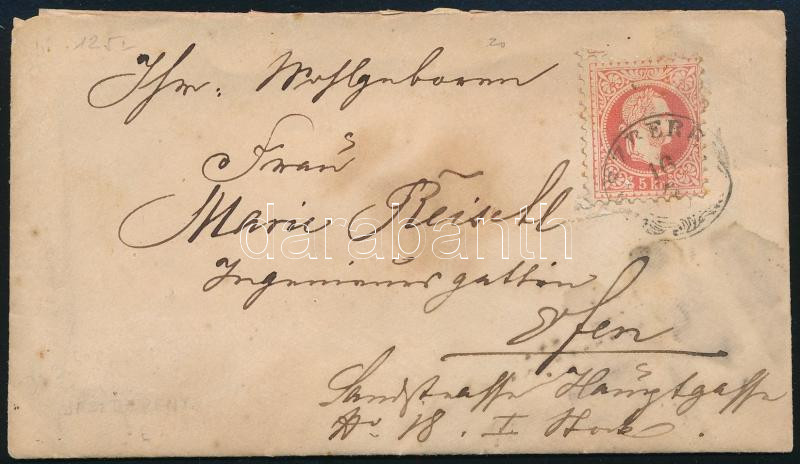 125
20
Ihr: Wohlgeboren
Frau
Marie Reischl
Ingenieursgattin
Ofen
Landstrasse Hauptgasse
No 18. I Stock.
5 kr
16
darabanth